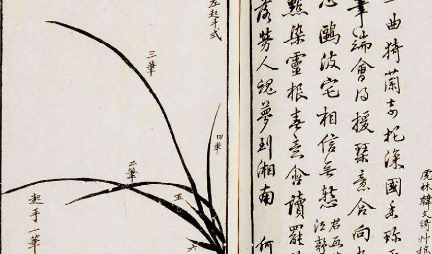 虎林韓文綺
一曲猗蘭寄托深國香珎
筆端會得援琴意合向
心鷗波宅相信無慙
點染靈根春意含讀罷
落勞人魂夢到湘南 何
左起手式
四筆
三筆
二筆
五
六
起手一筆